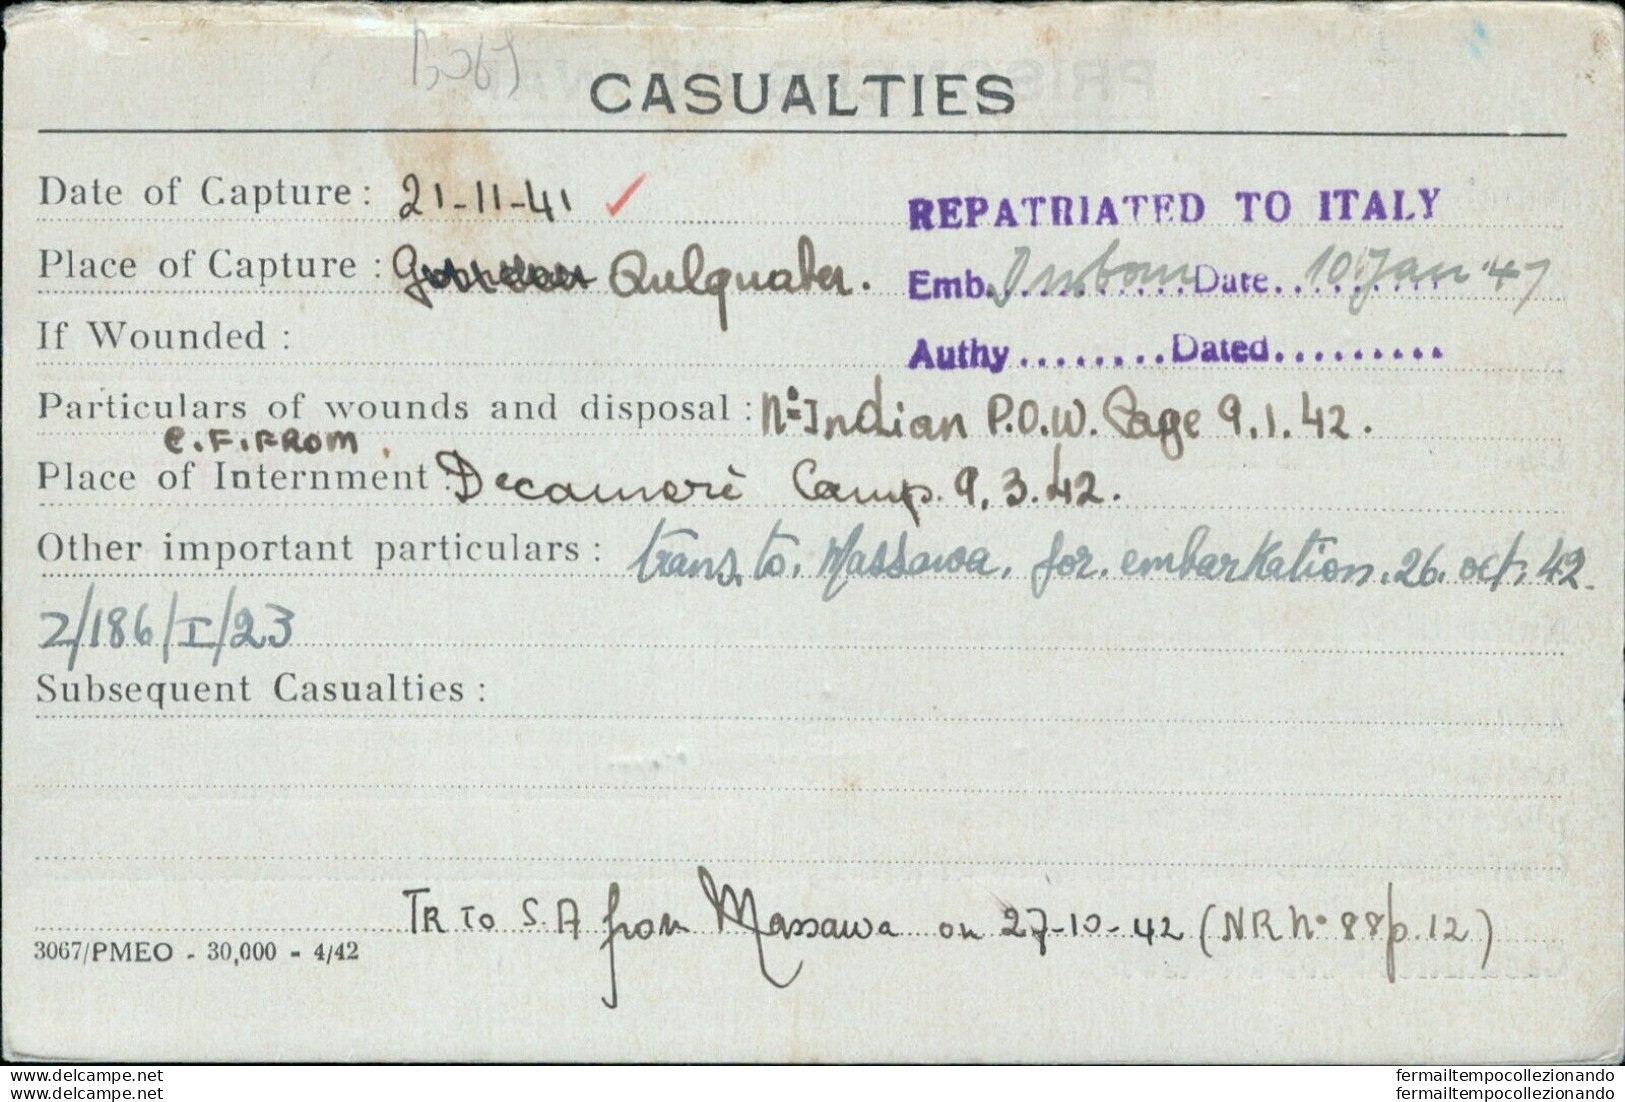 CASUALTIES
Date of Capture : 21-11-41
REPATRIATED TO ITALY
Place of Capture : Qulquaber.
Emb. Durban Date 10 Jan '47
If Wounded :
Authy........Dated.........
Particulars of wounds and disposal : Indian P.O.W. Cage 9.1.42.
C.F. FROM
Place of Internment : Decamerè Camp. 9.3.42.
Other important particulars : trans. to. Massawa. for. embarkation. 26. oct. 42.
2/186/I/23
Subsequent Casualties :
TR TO S.A from Massawa on 27-10-42 (NR N° 88/p.12)
3067/PMEO - 30,000 - 4/42
www.delcampe.net
www.delcampe.net
fermailtempocollezionando
fermailtempocollezionando